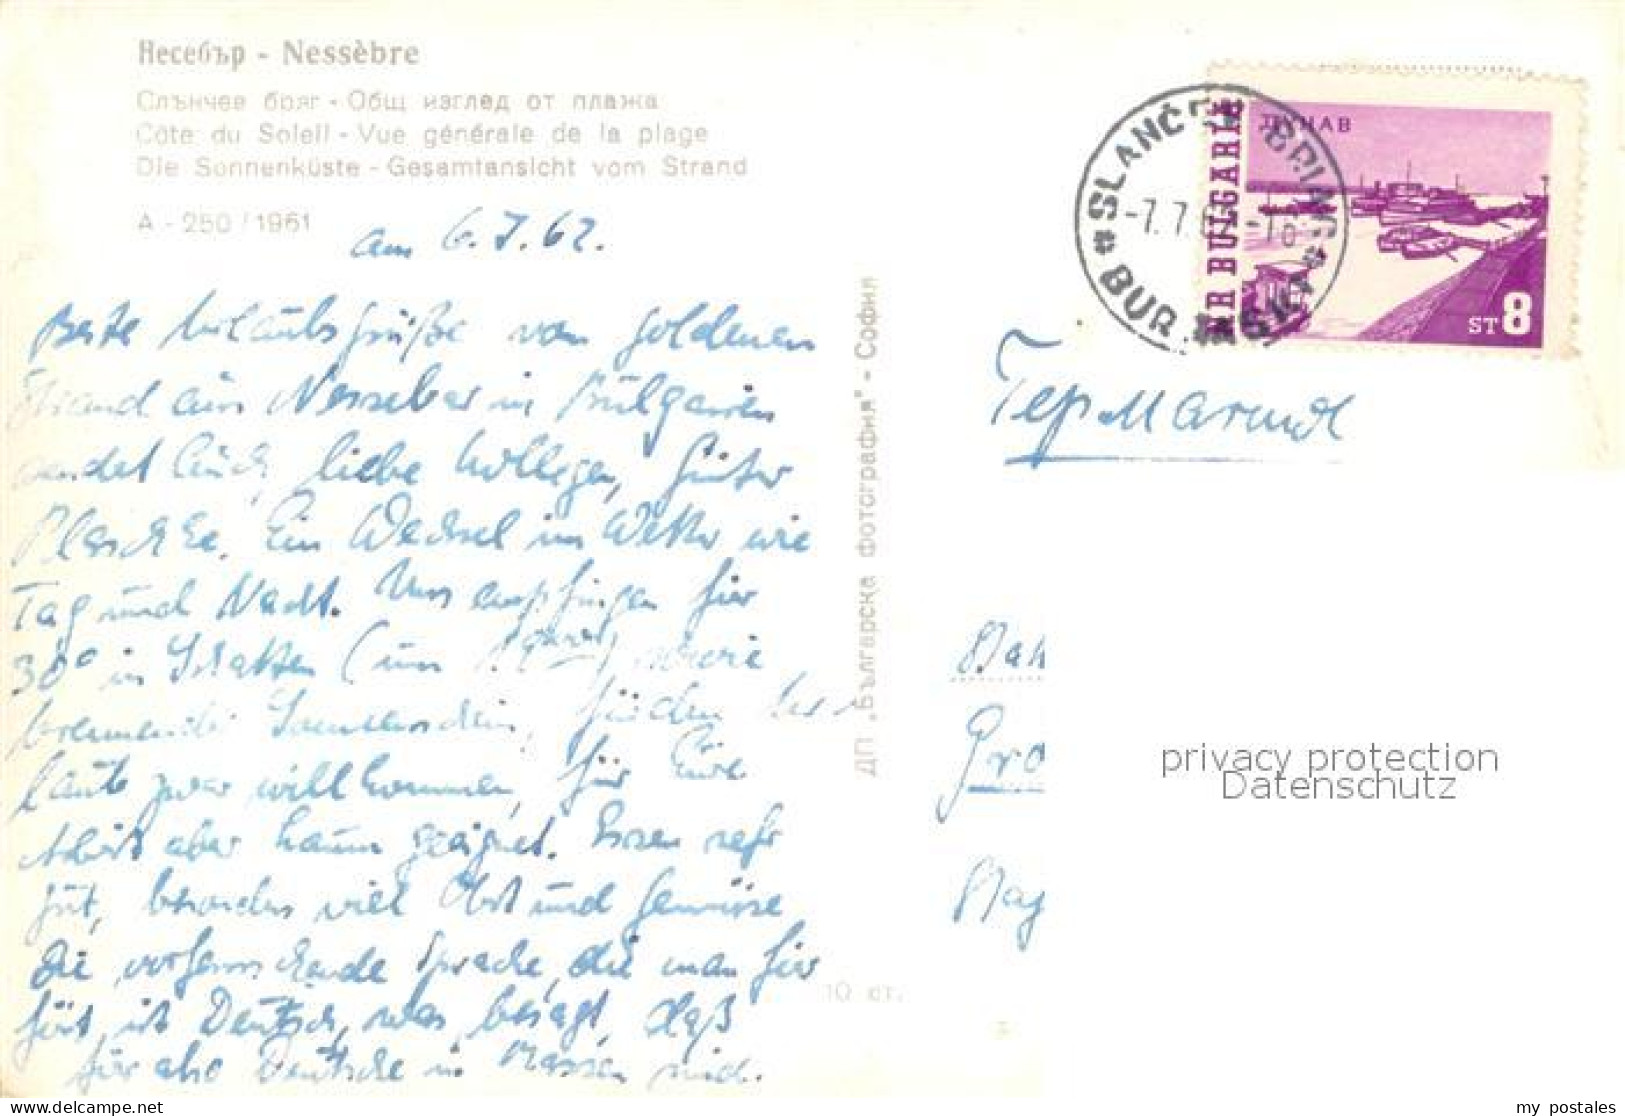 Несебър - Nessèbre
Слънчев бряг - Общ изглед от плажа
Côte du Soleil - Vue générale de la plage
Die Sonnenküste - Gesamtansicht vom Strand
A - 250 / 1961
am 6.7.62.
Beste Urlaubsgrüße vom goldenen
Strand aus Nesseber in Bulgarien
sendet Euch, liebe Kollegen, Günter
Ein Wechsel im Wetter wie
Tag und Nacht. Uns empfingen hier
30° in Schatten (um sowie
brennender Sonnenschein, für den
zwar willkommen, für Eure
Arbeit aber kaum geeignet. Essen sehr
gut, besonders viel Obst und Gemüse
Die vorherrschende Sprache, die man hier
hört, ist Deutsch, was besagt, daß
hier also Deutsche in Massen sind.
ДП „Българска фотография" - София
10 ст.
SLANČEV BRJAG
-7.7.6
BURGASKI
ДУНАВ
NR BULGARIE
ST 8
Германия
Bah
Gro
Mag
privacy protection
Datenschutz
my postales